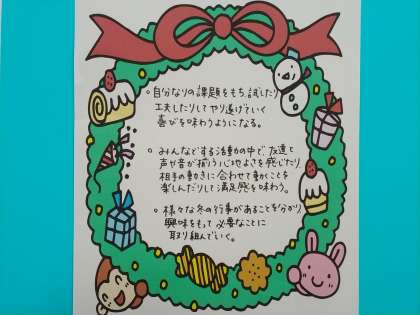 。自分なりの課題をもち、試したり
工夫したりしてやり遂げていく
喜びを味わうようになる。
。みんなとする活動の中で、友達と
声や音が揃う心地よさを感じたり
相手の動きに合わせて動くことを
楽しんだりして満足感を味わう。
。様々な冬の行事があることを分かり、
興味をもって必要なことに
取り組んでいく。